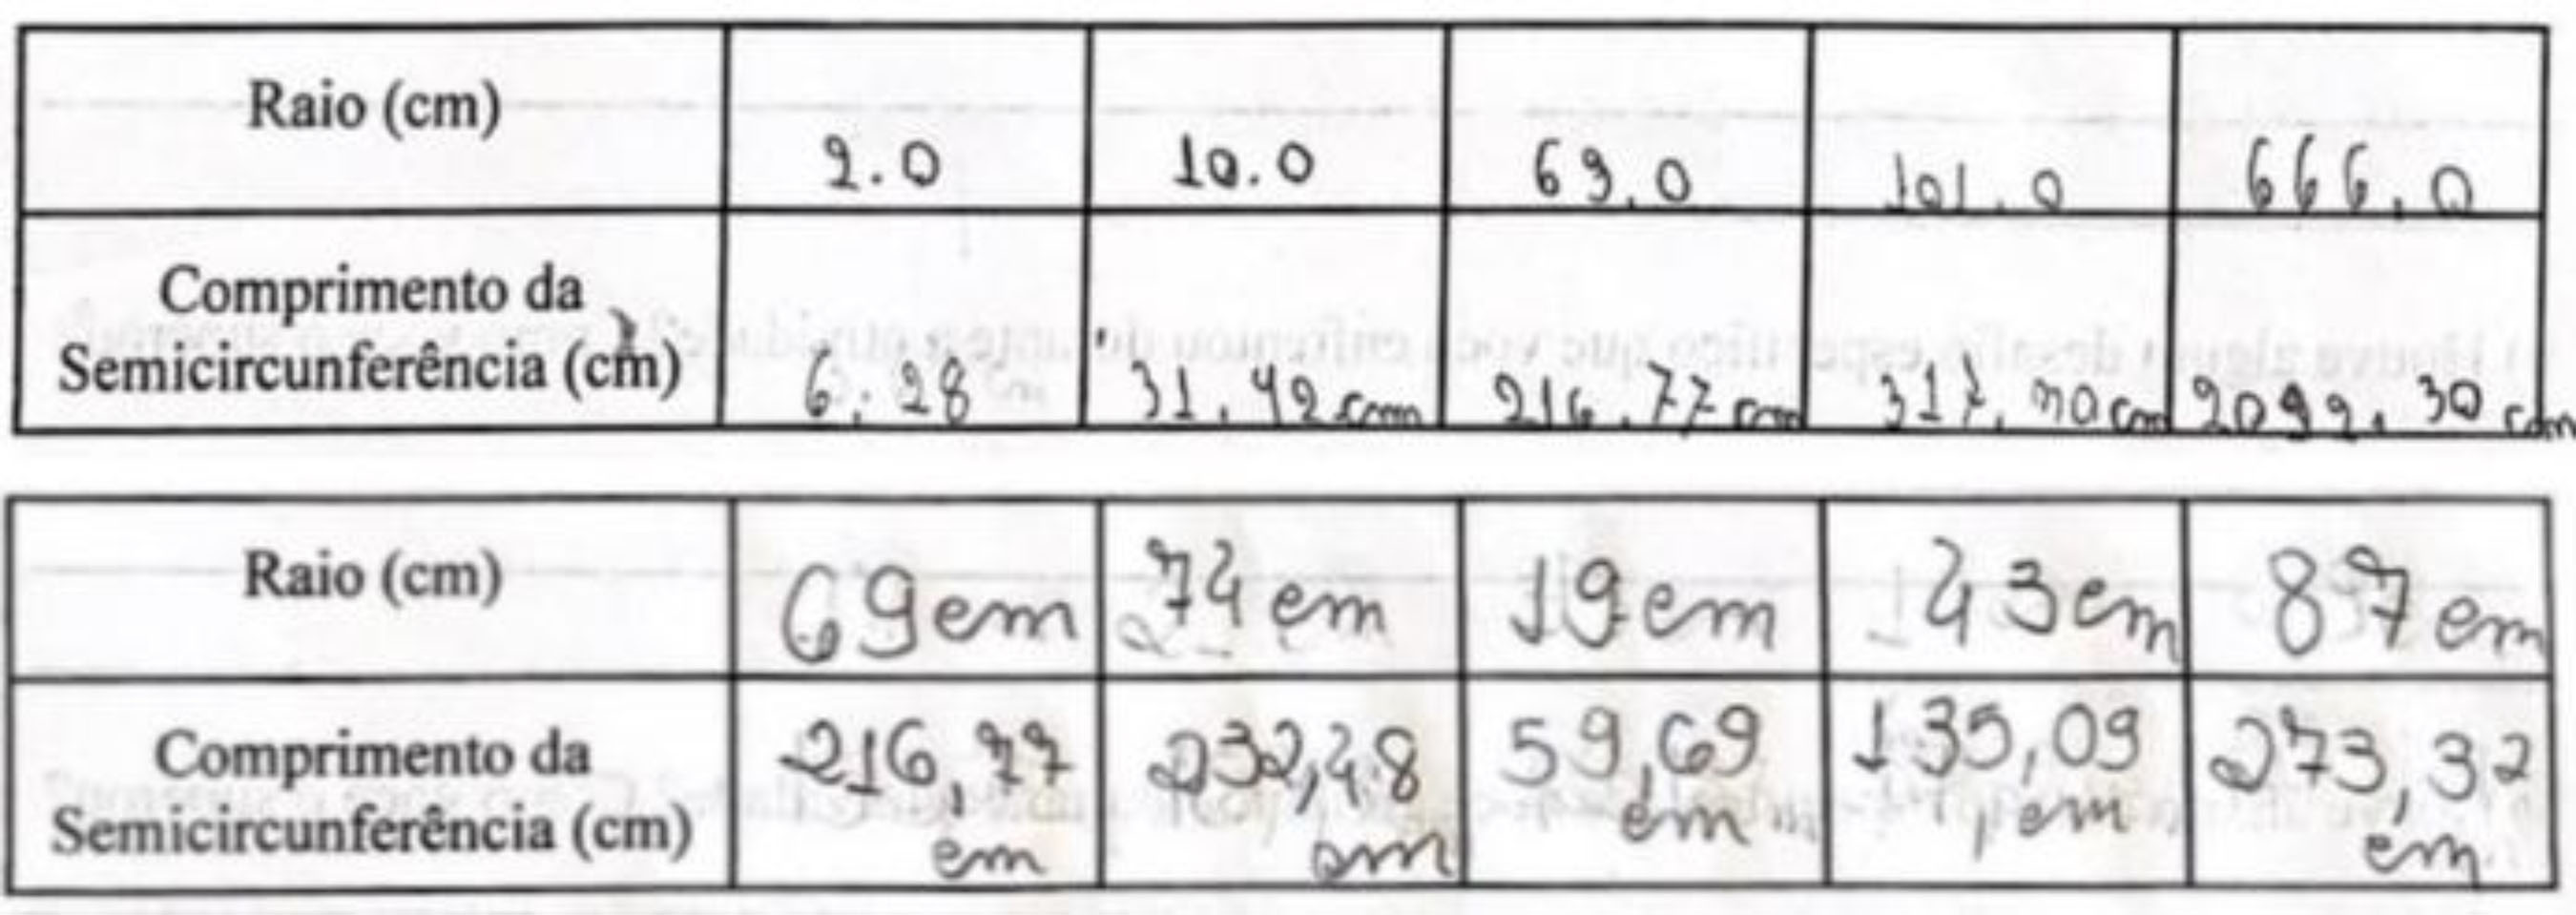 Raio (cm) 2.0 10.0 69.0 101.0 666.0
Comprimento da
Semicircunferência (cm) 6.28 31.42 cm 216.77 cm 317.30 cm 2092.30 cm
Raio (cm) 69 cm 74 cm 19 cm 43 cm 87 cm
Comprimento da
Semicircunferência (cm) 216,77 232,48 59,69 135,09 273,32
cm cm cm cm cm